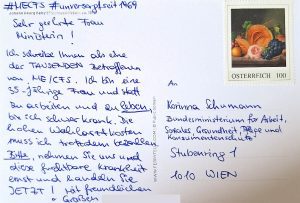 #MECFS #unversorgtseit1969
Sehr geehrte Frau
Ministerin!
Ich schreibe Ihnen als eine
der TAUSENDEN Betroffenen
von ME/CFS. Ich bin eine
35-jährige Frau und statt
zu arbeiten und zu leben,
bin ich schwer krank. Die
hohen Wahlarztkosten
muss ich trotzdem bezahlen
Bitte, nehmen Sie uns und
diese furchtbare Krankheit
ernst und handeln Sie
JETZT! Mit freundlichen
Grüßen
ÖSTERREICH 100
An
Korinna Schumann
Bundesministerium für Arbeit,
Soziales, Gesundheit, Pflege und
Konsumentenschutz
Stubenring 1
1010 WIEN